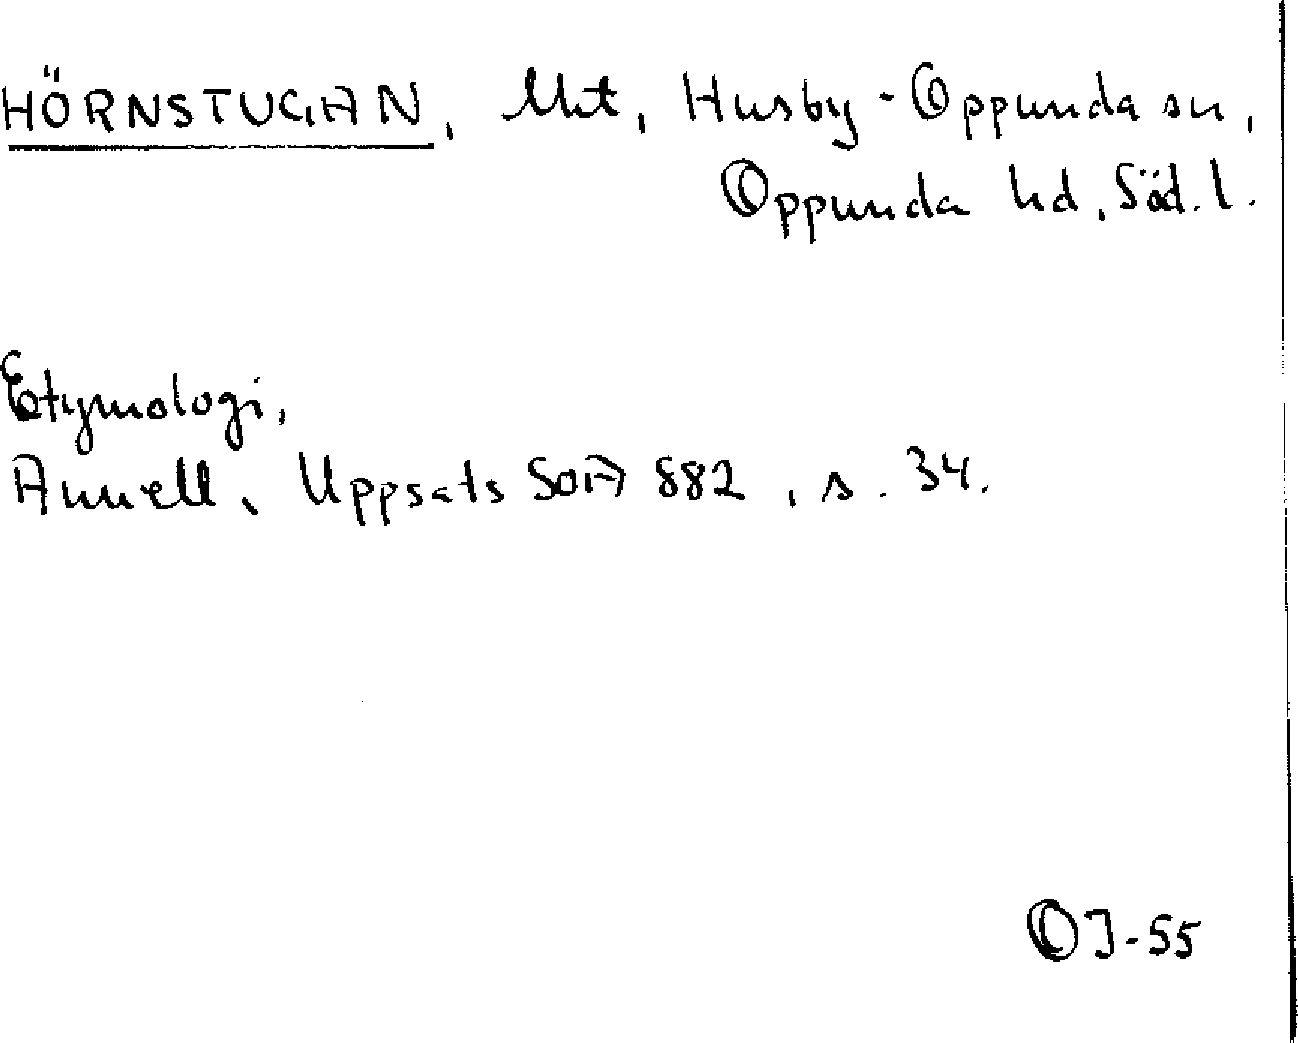 HÖRNSTUGAN, Lht, Husby-Oppunda sn,
Oppunda hd, Söd. l.
Etymologi,
Annell, Uppsats SOA 882, s. 34.
OJ-55